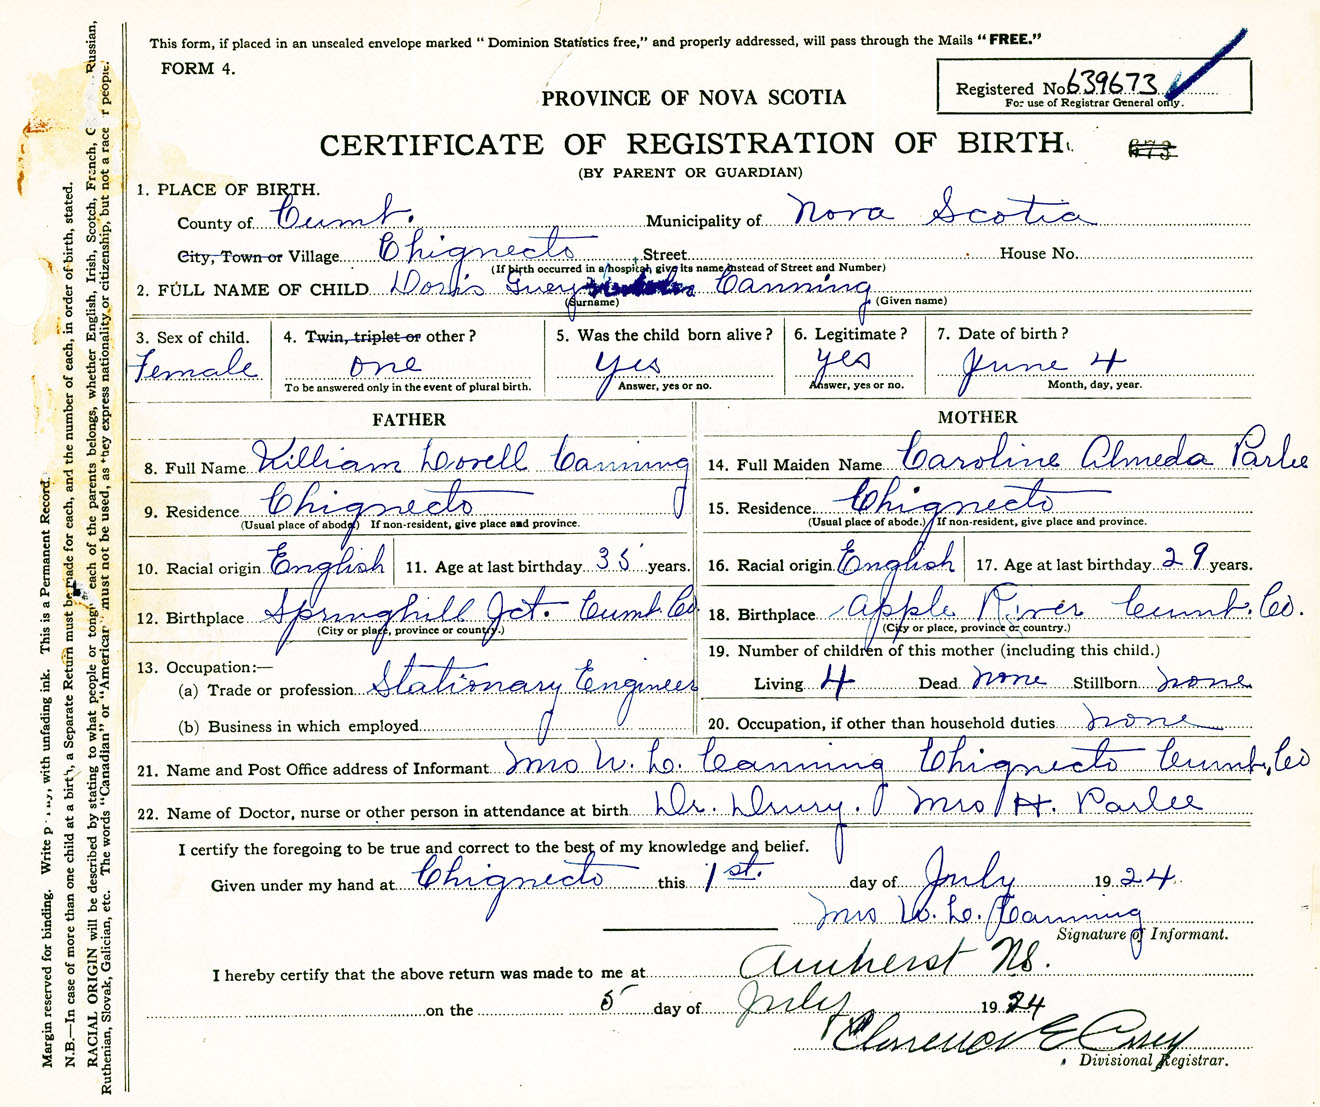 This form, if placed in an unsealed envelope marked "Dominion Statistics free," and properly addressed, will pass through the Mails "FREE."
FORM 4.
Registered No. 639673
For use of Registrar General only.
PROVINCE OF NOVA SCOTIA
CERTIFICATE OF REGISTRATION OF BIRTH.
673
(BY PARENT OR GUARDIAN)
1. PLACE OF BIRTH.
County of Cumb. Municipality of Nova Scotia
City, Town or Village Chignecto Street House No.
(If birth occurred in a hospital, give its name instead of Street and Number)
2. FULL NAME OF CHILD Doris Canning
(Surname) (Given name)
3. Sex of child. 4. Twin, triplet or other? 5. Was the child born alive? 6. Legitimate? 7. Date of birth?
Female one yes yes June 4
To be answered only in the event of plural birth. Answer, yes or no. Answer, yes or no. Month, day, year.
FATHER
8. Full Name William Lovell Canning
9. Residence Chignecto
(Usual place of abode.) If non-resident, give place and province.
10. Racial origin English 11. Age at last birthday 35 years.
12. Birthplace Springhill Jct. Cumb. Co.
(City or place, province or country.)
13. Occupation:—
(a) Trade or profession Stationary Engineer
(b) Business in which employed
MOTHER
14. Full Maiden Name Caroline Almeda Parlee
15. Residence Chignecto
(Usual place of abode.) If non-resident, give place and province.
16. Racial origin English 17. Age at last birthday 29 years.
18. Birthplace Apple River Cumb. Co.
(City or place, province or country.)
19. Number of children of this mother (including this child.)
Living 4 Dead none Stillborn none
20. Occupation, if other than household duties none
21. Name and Post Office address of Informant Mrs W. L. Canning Chignecto Cumb. Co
22. Name of Doctor, nurse or other person in attendance at birth Dr. Drury. Mrs H. Parlee
I certify the foregoing to be true and correct to the best of my knowledge and belief.
Given under my hand at Chignecto this 1st. day of July 1924
Mrs W. L. Canning
Signature of Informant.
I hereby certify that the above return was made to me at Amherst NS.
on the 5 day of July 1924
Clarence E Casey
Divisional Registrar.
Margin reserved for binding. Write with unfading ink. This is a Permanent Record.
N.B.—In case of more than one child at a birth, a Separate Return must be made for each, and the number of each, in order of birth, stated.
RACIAL ORIGIN will be described by stating to what people or tongue each of the parents belongs, whether English, Irish, Scotch, French, Russian,
Ruthenian, Slovak, Galician, etc. The words "Canadian" or "American" must not be used, as they express nationality or citizenship, but not a race people.